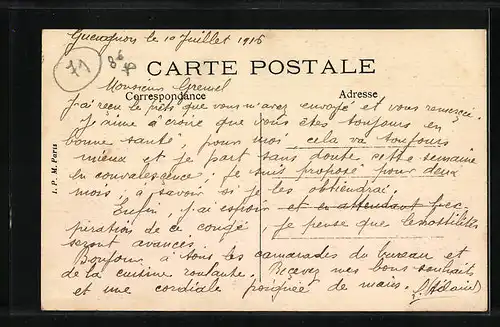 Gueugnon le 10 Juillet 1916
71
CARTE POSTALE
Monsieur
Correspondance Adresse
J'ai reçu le prêts que vous m'avez envoyé et vous remercie.
Je aime à croire que vous êtes toujours en
bonne santé, pour moi cela va toujours
mieux et je part sans doute cette semaine
en convalescence; je suis proposé pour deux
mois, à savoir si je les obtiendrai.
Enfin j'ai espoir et en attendant
piration de ce congé, je pense que les hostilités
seront avancés
Bonjour à tous les camarades du bureau et
de la cuisine roulante. Recevez mes bons souhaits
et une cordiale poignée de mains.
I. P. M. Paris